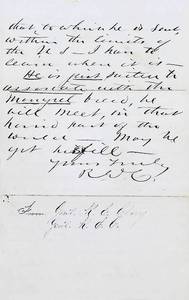 that to which he is sent,
within the limits
of the U.S. – I have to
learn where it is –
He is just suited to
associate with the
Mongrel breed, he
will meet, in that
part of the
world – May he
get his fill –
Yours truly
From Genl. R. C.
Genl. R. C. C.